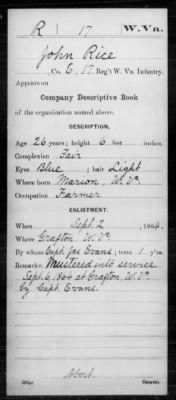 R 17 W. Va.
John Rice
, Co. E, 17 Reg't W. Va. Infantry.
Appears on
Company Descriptive Book
of the organization named above.
DESCRIPTION.
Age 26 years; height 6 feet inches.
Complexion Fair
Eyes Blue; hair Light
Where born Marion, W. Va.
Occupation Farmer
ENLISTMENT.
When Sept. 2, 1864.
Where Grafton, W. Va.
By whom Capt. Jas Evans; term 1 y'rs.
Remarks: Mustered into service
Sept. 6, 1864 at Grafton, W. Va.
by Capt. Evans.
Copyist.